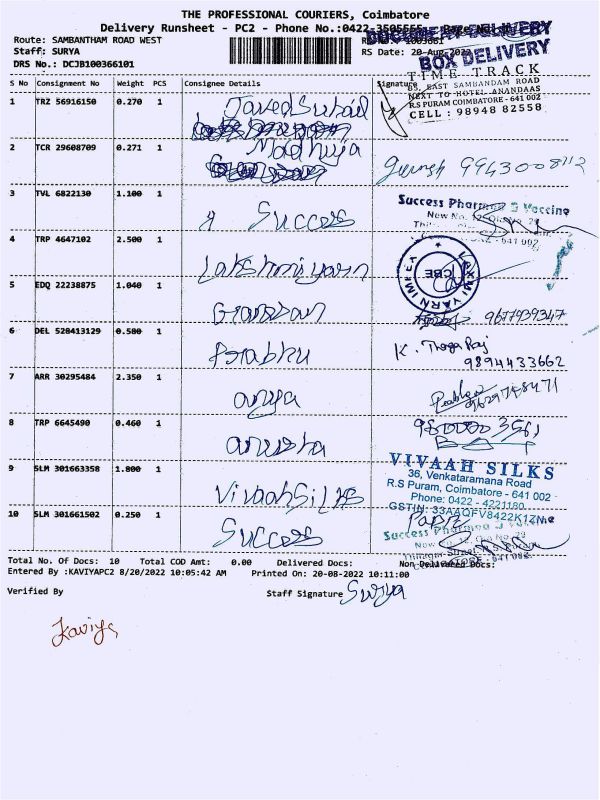 THE PROFESSIONAL COURIERS, Coimbatore
Delivery Runsheet - PC2 - Phone No.:0422-3505555
DOCUMENT DELIVERY
BOX DELIVERY
Route: SAMBANTHAM ROAD WEST
Staff: SURYA RS Date: 20-Aug-2022
DRS No.: DCJB100366101
TIME TRACK
85, EAST SAMBANDAM ROAD
NEXT TO HOTEL ANANDAAS
R.S PURAM COIMBATORE - 641 002
CELL : 98948 82558
S No Consignment No Weight PCS Consignee Details Signature
1 TRZ 56916150 0.270 1 Javed Suhail
2 TCR 29608709 0.271 1 Madhuja 9943008112
3 TVL 6822130 1.100 1 Success
Success Pharmaa & Vaccine
4 TRP 4647102 2.500 1 Lakshmi yarn
LAKSHMI YARN IMPEX
CBE
5 EDQ 22238875 1.040 1 9677939347
6 DEL 528413129 0.580 1 Prabhu K. Thaga Raj
9894433662
7 ARR 30295484 2.350 1 arya
8 TRP 6645490 0.460 1 anusha
9 SLM 301663358 1.800 1 Vivaah Silks
VIVAAH SILKS
36, Venkataramana Road
R.S Puram, Coimbatore - 641 002
Phone: 0422 - 4221180
GSTIN: 33AAQFV8422K1ZN
10 SLM 301661502 0.250 1 Success
Success Pharmaa & Vaccine
Total No. Of Docs: 10 Total COD Amt: 0.00 Delivered Docs: Non Delivered Docs:
Entered By :KAVIYAPC2 8/20/2022 10:05:42 AM Printed On: 20-08-2022 10:11:00
Verified By Staff Signature Surya
Kaviya